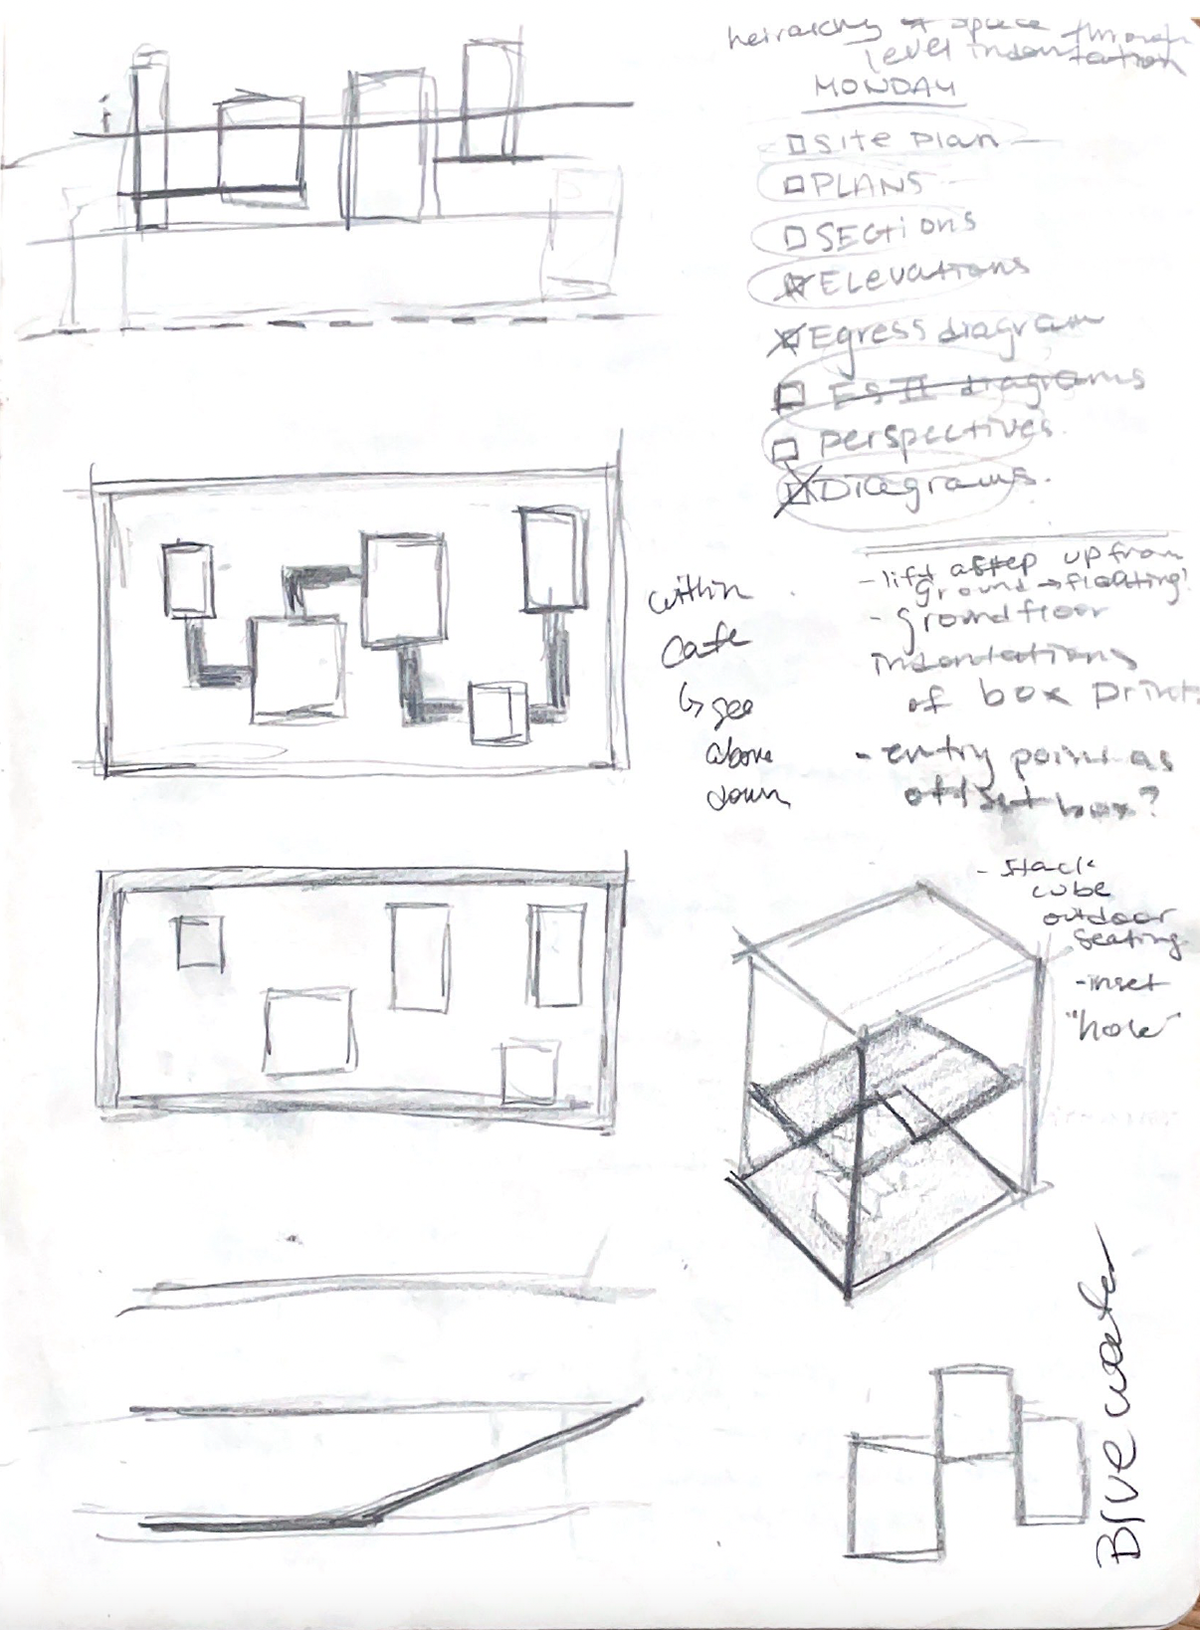 heirarchy of space through
level indentation
MONDAY
site plan
PLANS
SECtions
Elevations
Egress diagram
ES II diagrams
perspectives.
Diagrams.
- lift a step up from
ground → floating!
- ground floor
indentations
of box prints
- entry point as
offset box?
within
Cafe
↳ see
above
down
- Stack
cube
outdoor
seating
- inset
"hole"
Blue water